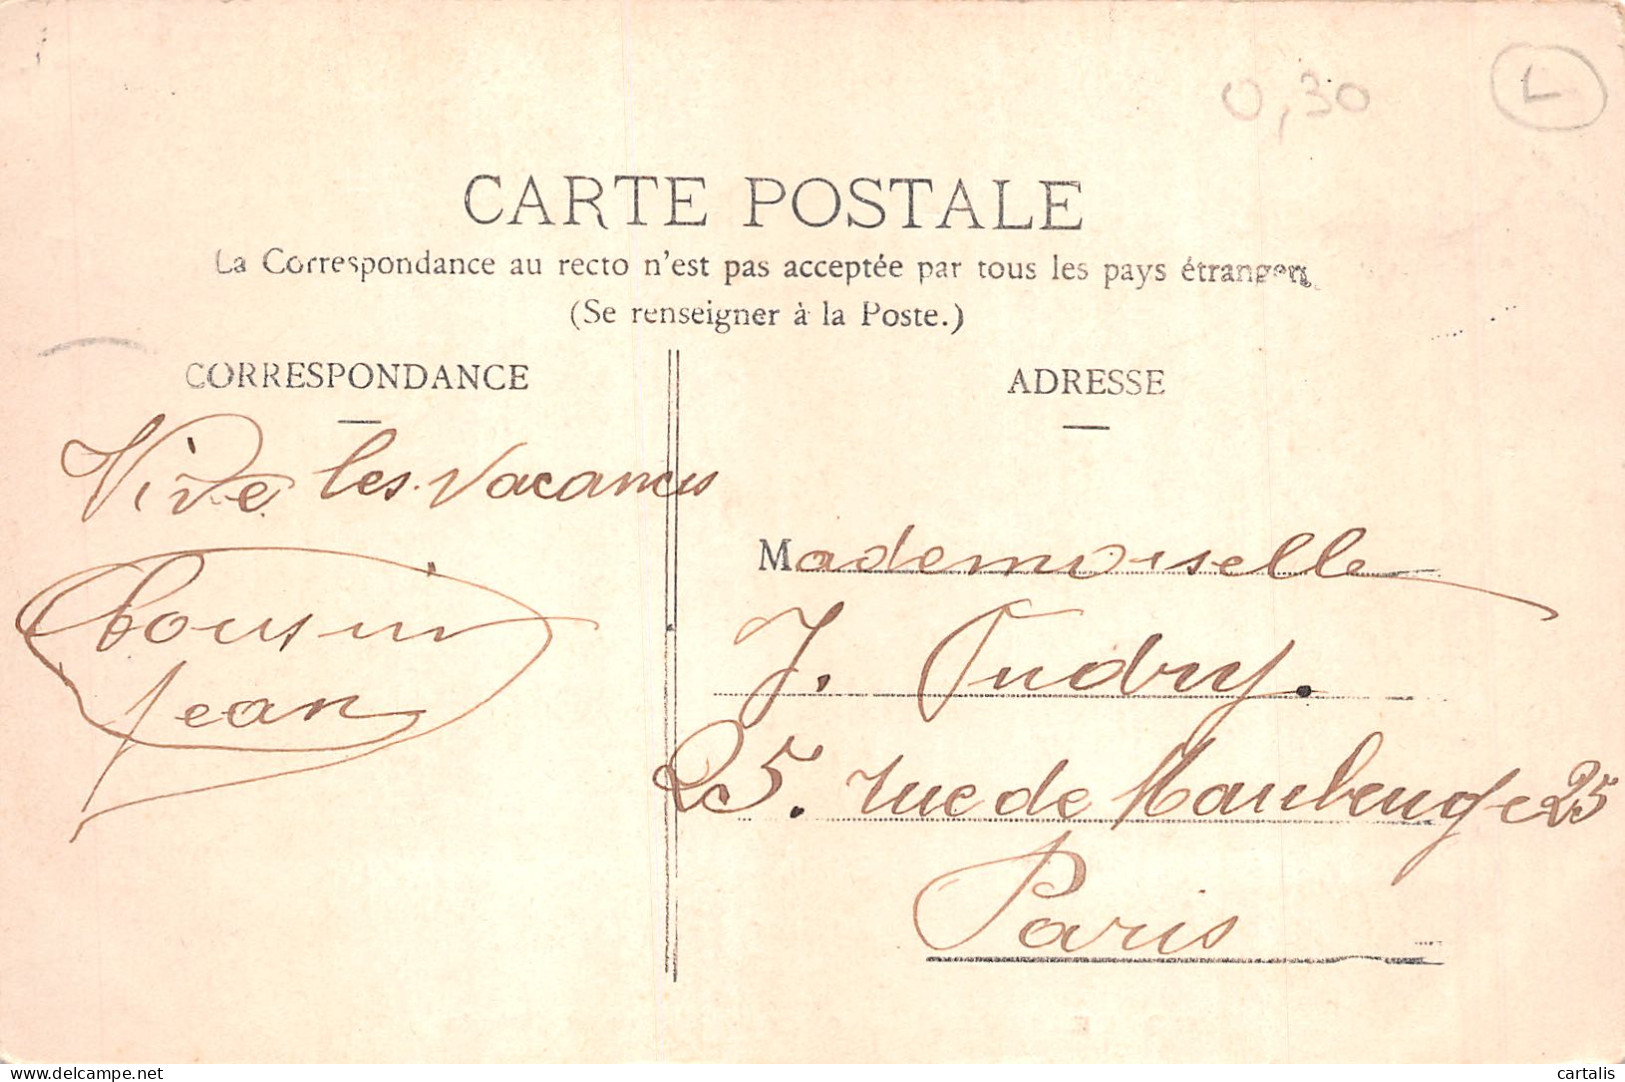 0,30
L
CARTE POSTALE
La Correspondance au recto n'est pas acceptée par tous les pays étrangers
(Se renseigner à la Poste.)
CORRESPONDANCE
ADRESSE
Vive les vacances
Cousin
Jean
Mademoiselle
J. Oudry.
25. rue de Maubeuge 25
Paris
delcampe.net
cartalis